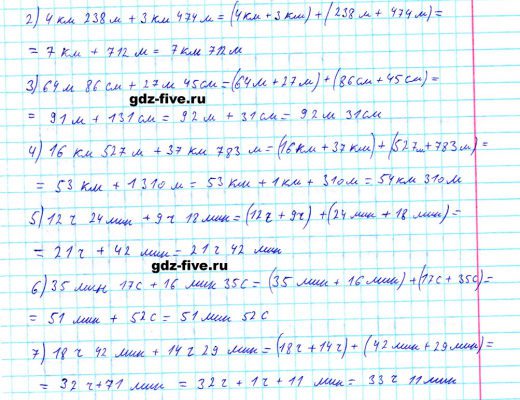 2) 4 км 238 м + 3 км 474 м = (4 км + 3 км) + (238 м + 474 м) =
= 7 км + 712 м = 7 км 712 м
3) 64 м 86 см + 27 м 45 см = (64 м + 27 м) + (86 см + 45 см) =
gdz-five.ru
= 91 м + 131 см = 92 м + 31 см = 92 м 31 см
4) 16 км 527 м + 37 км 783 м = (16 км + 37 км) + (527 м + 783 м) =
= 53 км + 1310 м = 53 км + 1 км + 310 м = 54 км 310 м
5) 12 ч 24 мин + 9 ч 18 мин = (12 ч + 9 ч) + (24 мин + 18 мин) =
= 21 ч + 42 мин = 21 ч 42 мин
gdz-five.ru
6) 35 мин 17 с + 16 мин 35 с = (35 мин + 16 мин) + (17 с + 35 с) =
= 51 мин + 52 с = 51 мин 52 с
7) 18 ч 42 мин + 14 ч 29 мин = (18 ч + 14 ч) + (42 мин + 29 мин) =
= 32 ч + 71 мин = 32 ч + 1 ч + 11 мин = 33 ч 11 мин